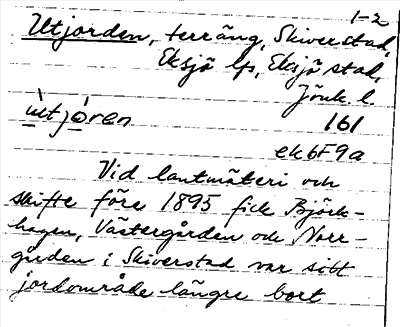 1-2
Utjorden, terräng, Skiverstad,
Eksjö lfs, Eksjö stad,
Jönk. l.
ùtjóren 161
ek6F9a
Vid lantmäteri och
skifte före 1895 fick Björk-
hagen, Västergården och Norr-
gården i Skiverstad var sitt
jordområde längre bort